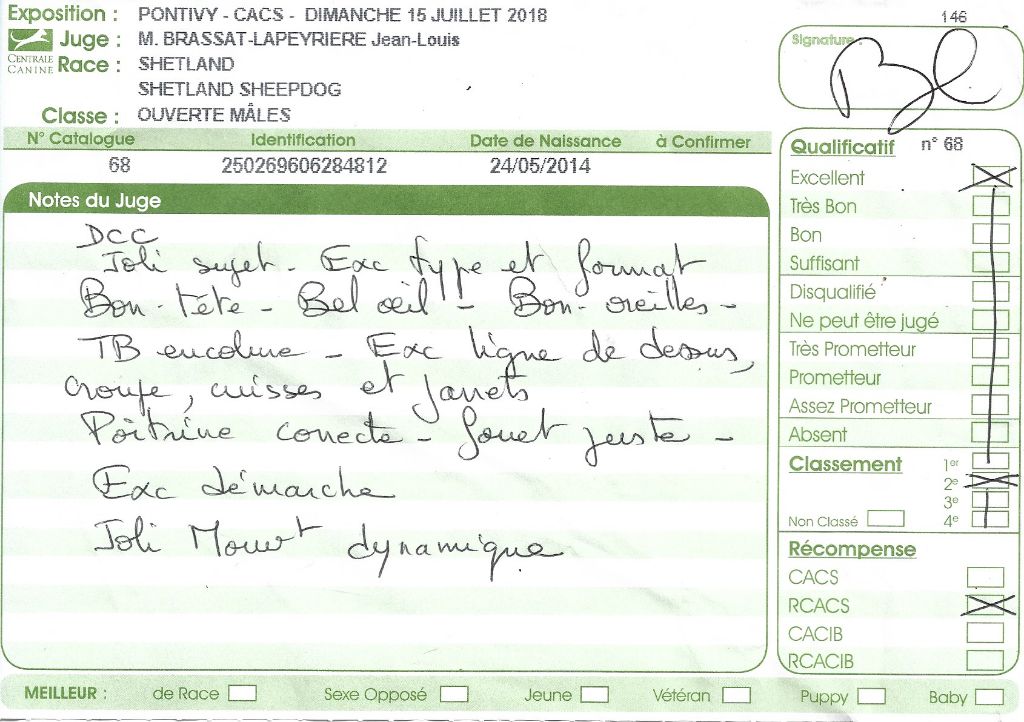 Exposition : PONTIVY - CACS - DIMANCHE 15 JUILLET 2018
146
CENTRALE CANINE
Juge : M. BRASSAT-LAPEYRIERE Jean-Louis
Race : SHETLAND
SHETLAND SHEEPDOG
Classe : OUVERTE MÂLES
Signature :
N° Catalogue Identification Date de Naissance à Confirmer
68 250269606284812 24/05/2014
Notes du Juge
DCC
Joli sujet - Exc type et format
Bon tête - Bel oeil - Bon oreilles -
TB encolure - Exc ligne de dessus,
croupe, cuisses et jarrets
Poitrine correcte - fouet juste -
Exc démarche
Joli Mouvt dynamique
Qualificatif n° 68
Excellent
Très Bon
Bon
Suffisant
Disqualifié
Ne peut être jugé
Très Prometteur
Prometteur
Assez Prometteur
Absent
Classement 1er
2e
3e
Non Classé 4e
Récompense
CACS
RCACS
CACIB
RCACIB
MEILLEUR : de Race Sexe Opposé Jeune Vétéran Puppy Baby